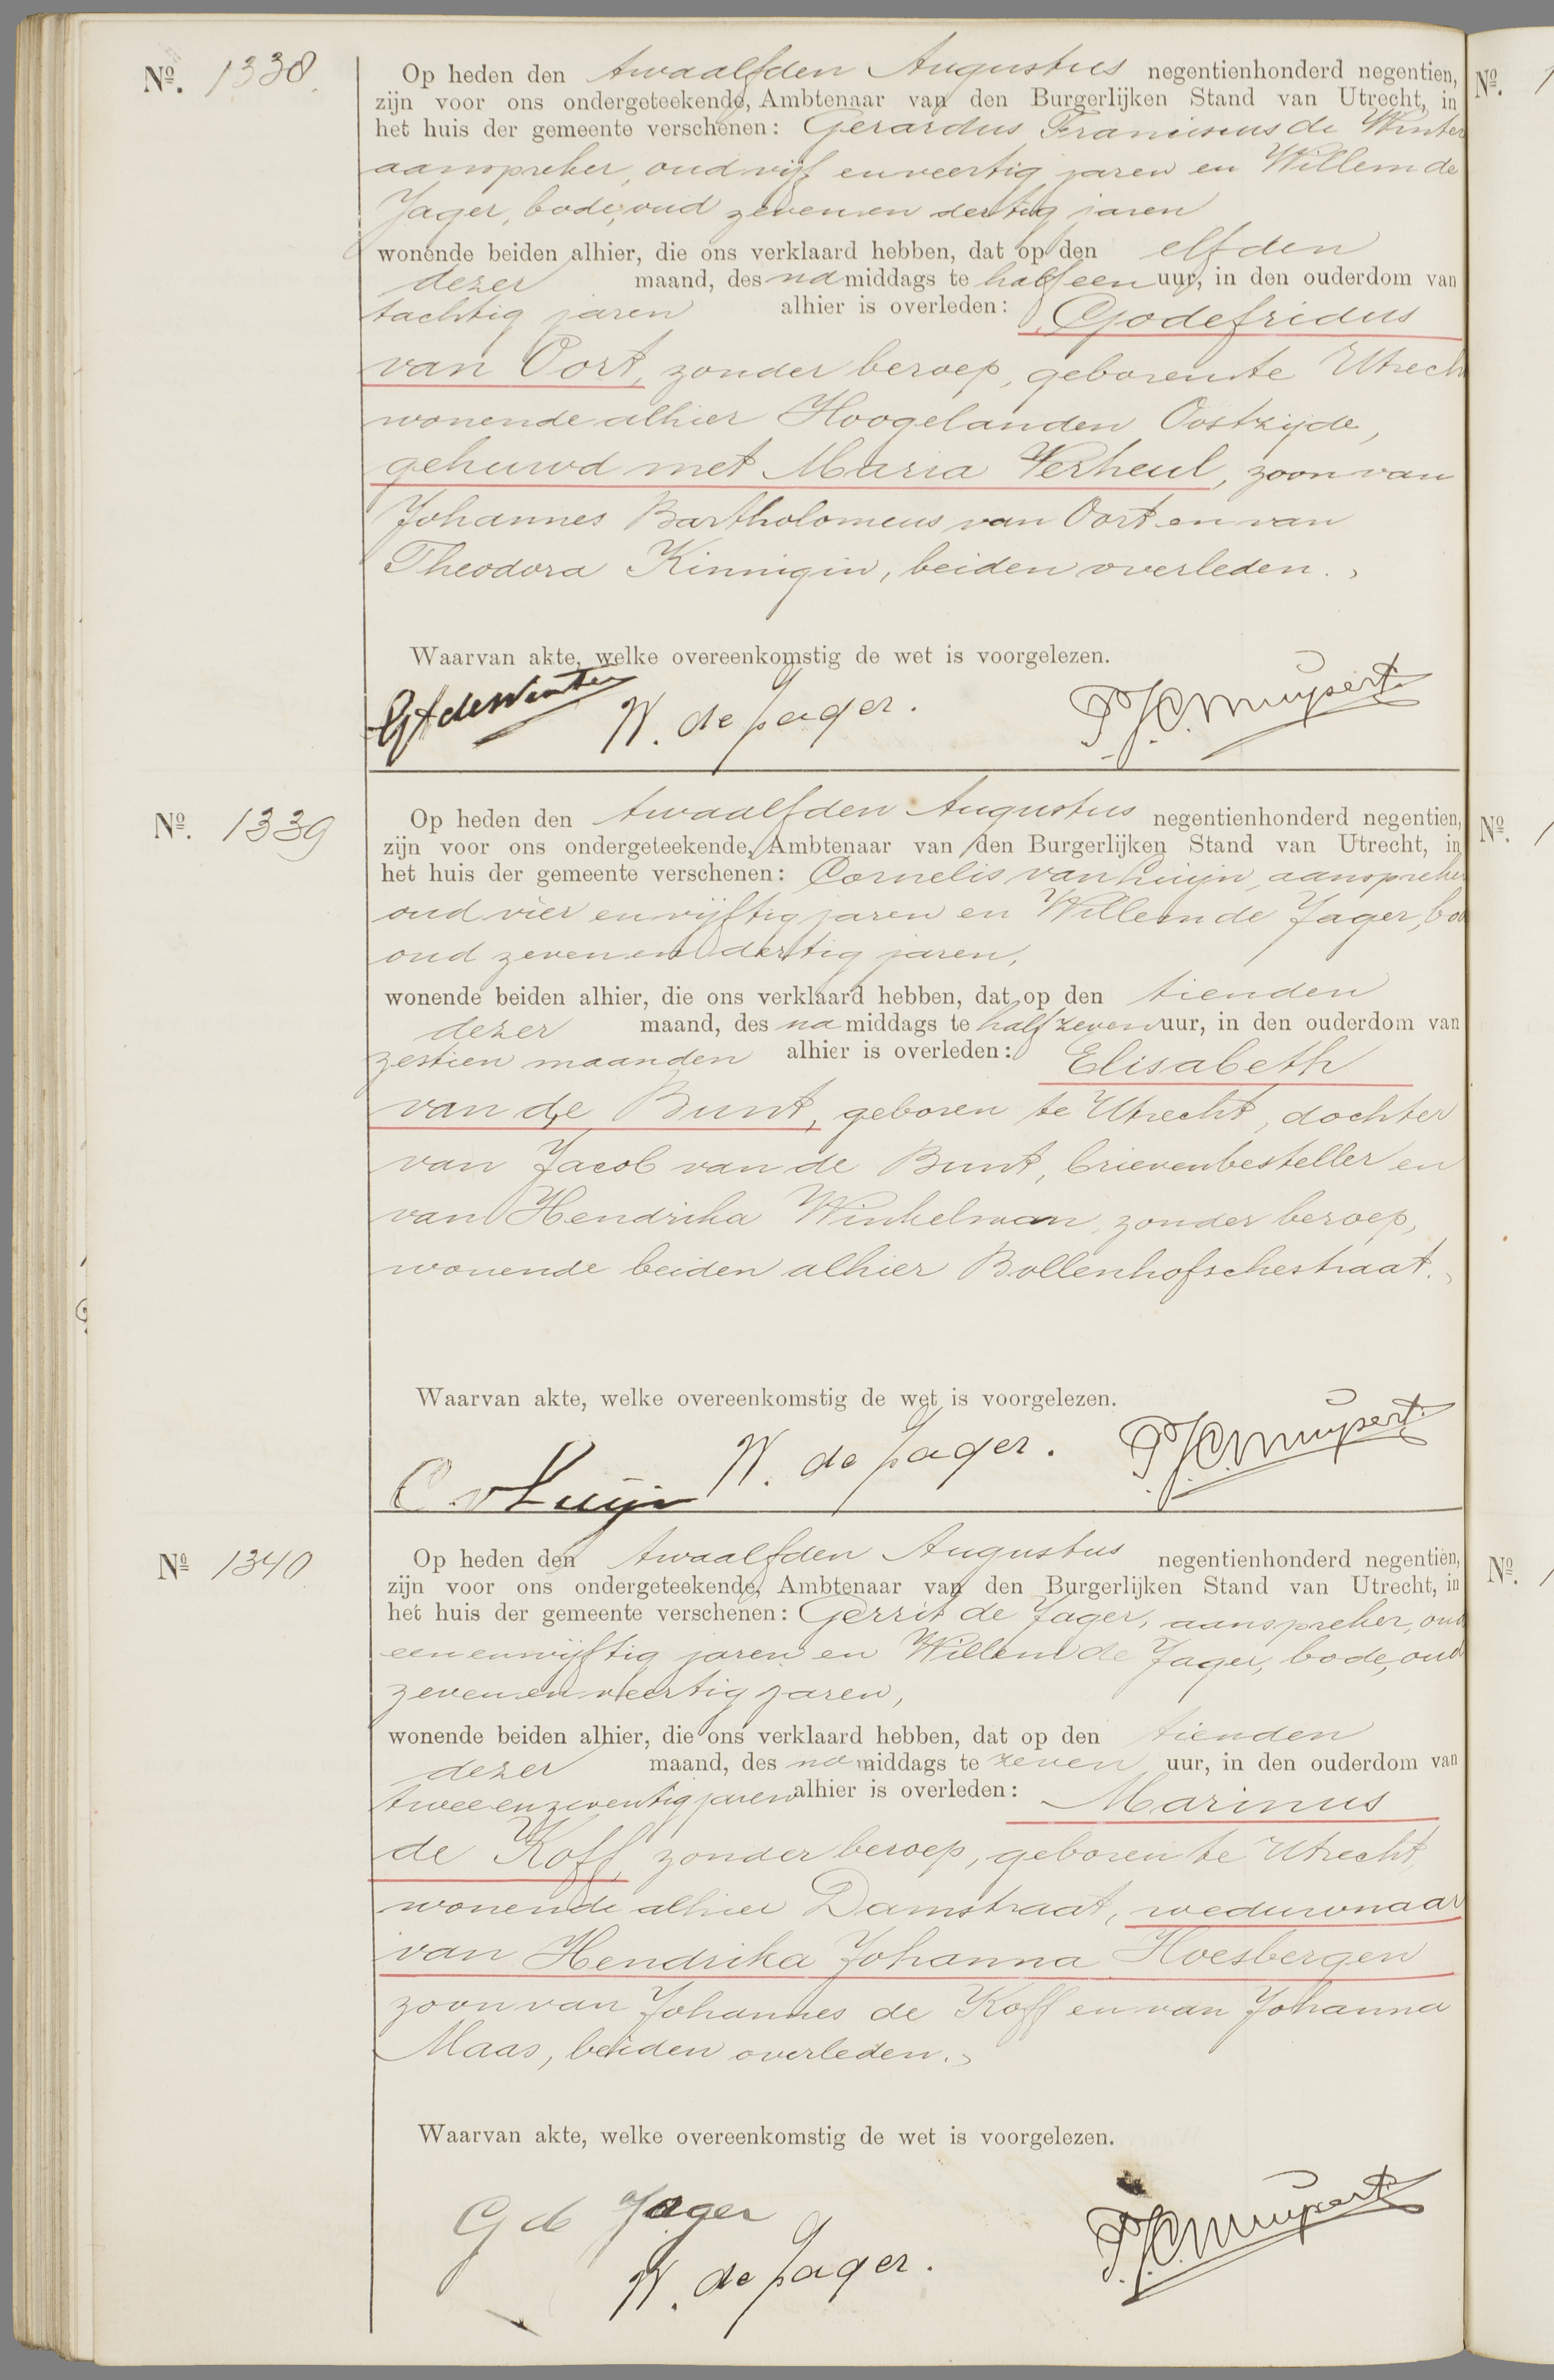 Nº. 1338.
Op heden den twaalfden Augustus negentienhonderd negentien,
zijn voor ons ondergeteekende, Ambtenaar van den Burgerlijken Stand van Utrecht, in
het huis der gemeente verschenen: Gerardus Franciscus de Winter
aanspreker, oud vijf en veertig jaren en Willem de
Jager, bode, oud zeven en dertig jaren
wonende beiden alhier, die ons verklaard hebben, dat op den elfden
dezer maand, des na middags te half een uur, in den ouderdom van
tachtig jaren alhier is overleden: Godefridus
van Oort, zonder beroep, geboren te Utrech
wonende alhier Hoogelanden Oostzijde,
gehuwd met Maria Verheul, zoon van
Johannes Bartholomeus van Oort en van
Theodora Kinnigin, beiden overleden.
Waarvan akte, welke overeenkomstig de wet is voorgelezen.
GF de Winter W. de Jager. P.J.C. Muijsert
Nº. 1339
Op heden den twaalfden Augustus negentienhonderd negentien,
zijn voor ons ondergeteekende, Ambtenaar van den Burgerlijken Stand van Utrecht, in
het huis der gemeente verschenen: Cornelis van Luijn, aanspreker
oud vier en vijftig jaren en Willem de Jager, bo
oud zeven en dertig jaren,
wonende beiden alhier, die ons verklaard hebben, dat op den tienden
dezer maand, des na middags te half zeven uur, in den ouderdom van
zestien maanden alhier is overleden: Elisabeth
van de Bunt, geboren te Utrecht, dochter
van Jacob van de Bunt, brievenbesteller en
van Hendrika Winkelman, zonder beroep,
wonende beiden alhier Bollenhofschestraat.
Waarvan akte, welke overeenkomstig de wet is voorgelezen.
C v Luijn W. de Jager. P.J.C. Muijsert
Nº 1340
Op heden den twaalfden Augustus negentienhonderd negentien,
zijn voor ons ondergeteekende, Ambtenaar van den Burgerlijken Stand van Utrecht, in
het huis der gemeente verschenen: Gerrit de Jager, aanspreker, oud
een en vijftig jaren en Willem de Jager, bode, oud
zeven en veertig jaren,
wonende beiden alhier, die ons verklaard hebben, dat op den tienden
dezer maand, des na middags te zeven uur, in den ouderdom van
twee en zeventig jaren alhier is overleden: Marinus
de Koff, zonder beroep, geboren te Utrecht,
wonende alhier Damstraat, weduwnaar
van Hendrika Johanna Hoesbergen
zoon van Johannes de Koff en van Johanna
Maas, beiden overleden.
Waarvan akte, welke overeenkomstig de wet is voorgelezen.
G de Jager
W. de Jager. P.J.C. Muijsert
Nº.
Nº.
Nº.